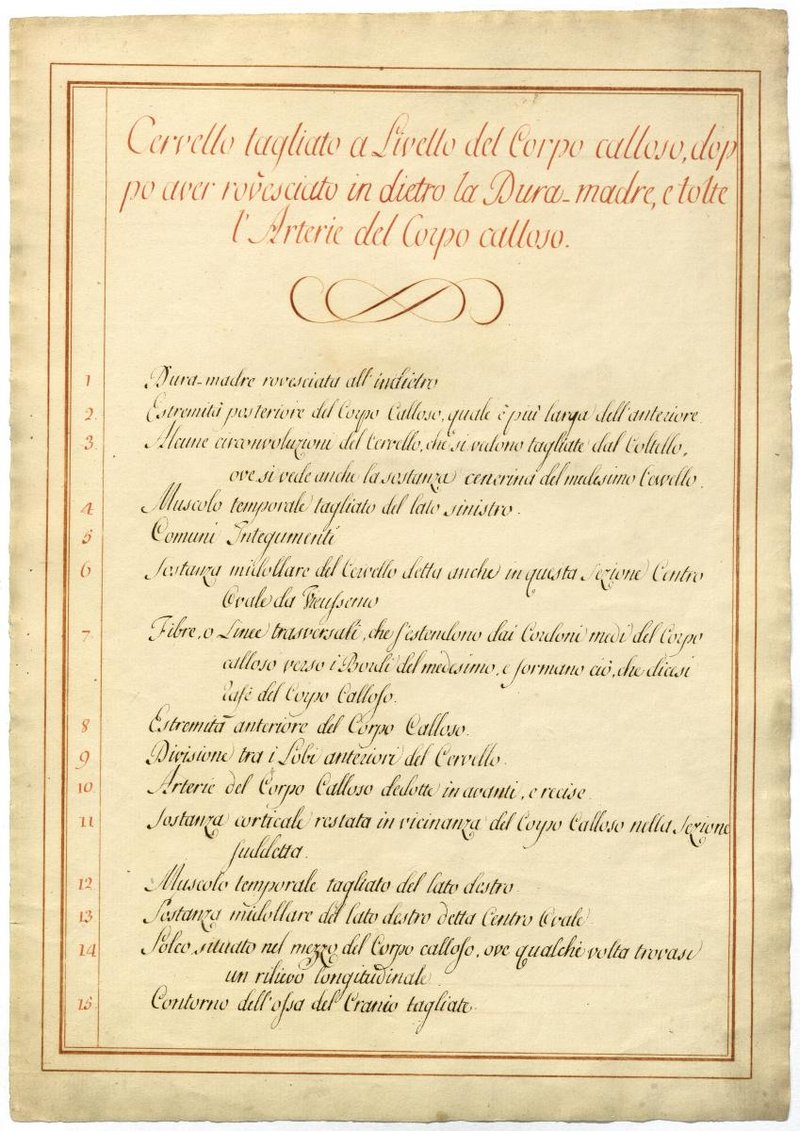 Cervello tagliato a Livello del Corpo calloso, dop
po aver rovesciato in dietro la Dura-madre, e tolte
l'Arterie del Corpo calloso.
1 Dura-madre rovesciata all'indietro
2. Estremità posteriore del Corpo Calloso, quale è più larga dell'anteriore.
3. Alcune circonvoluzioni del Cervello, che si vedono tagliate dal Coltello,
ove si vede anche la sostanza cenerina del medesimo Cervello.
4 Muscolo temporale tagliato del lato sinistro.
5 Comuni Integumenti
6 Sostanza midollare del Cervello detta anche in questa Sezione Centro
Ovale da
7 Fibre, o Linee trasversali, che s'estendono dai Cordoni medi del Corpo
calloso verso i Bordi del medesimo, e formano ciò, che dicesi
Rafe del Corpo Calloso.
8 Estremità anteriore del Corpo Calloso.
9 Divisione tra i Lobi anteriori del Cervello.
10 Arterie del Corpo Calloso dedotte in avanti, e recise.
11 Sostanza corticale restata in vicinanza del Corpo Calloso nella Sezione
suddetta.
12 Muscolo temporale tagliato del lato destro
13 Sostanza midollare del lato destro detta Centro Ovale
14 Solco, situato nel mezzo del Corpo calloso, ove qualche volta trovasi
un rilievo longitudinale
15 Contorno dell'ossa del Cranio tagliate.